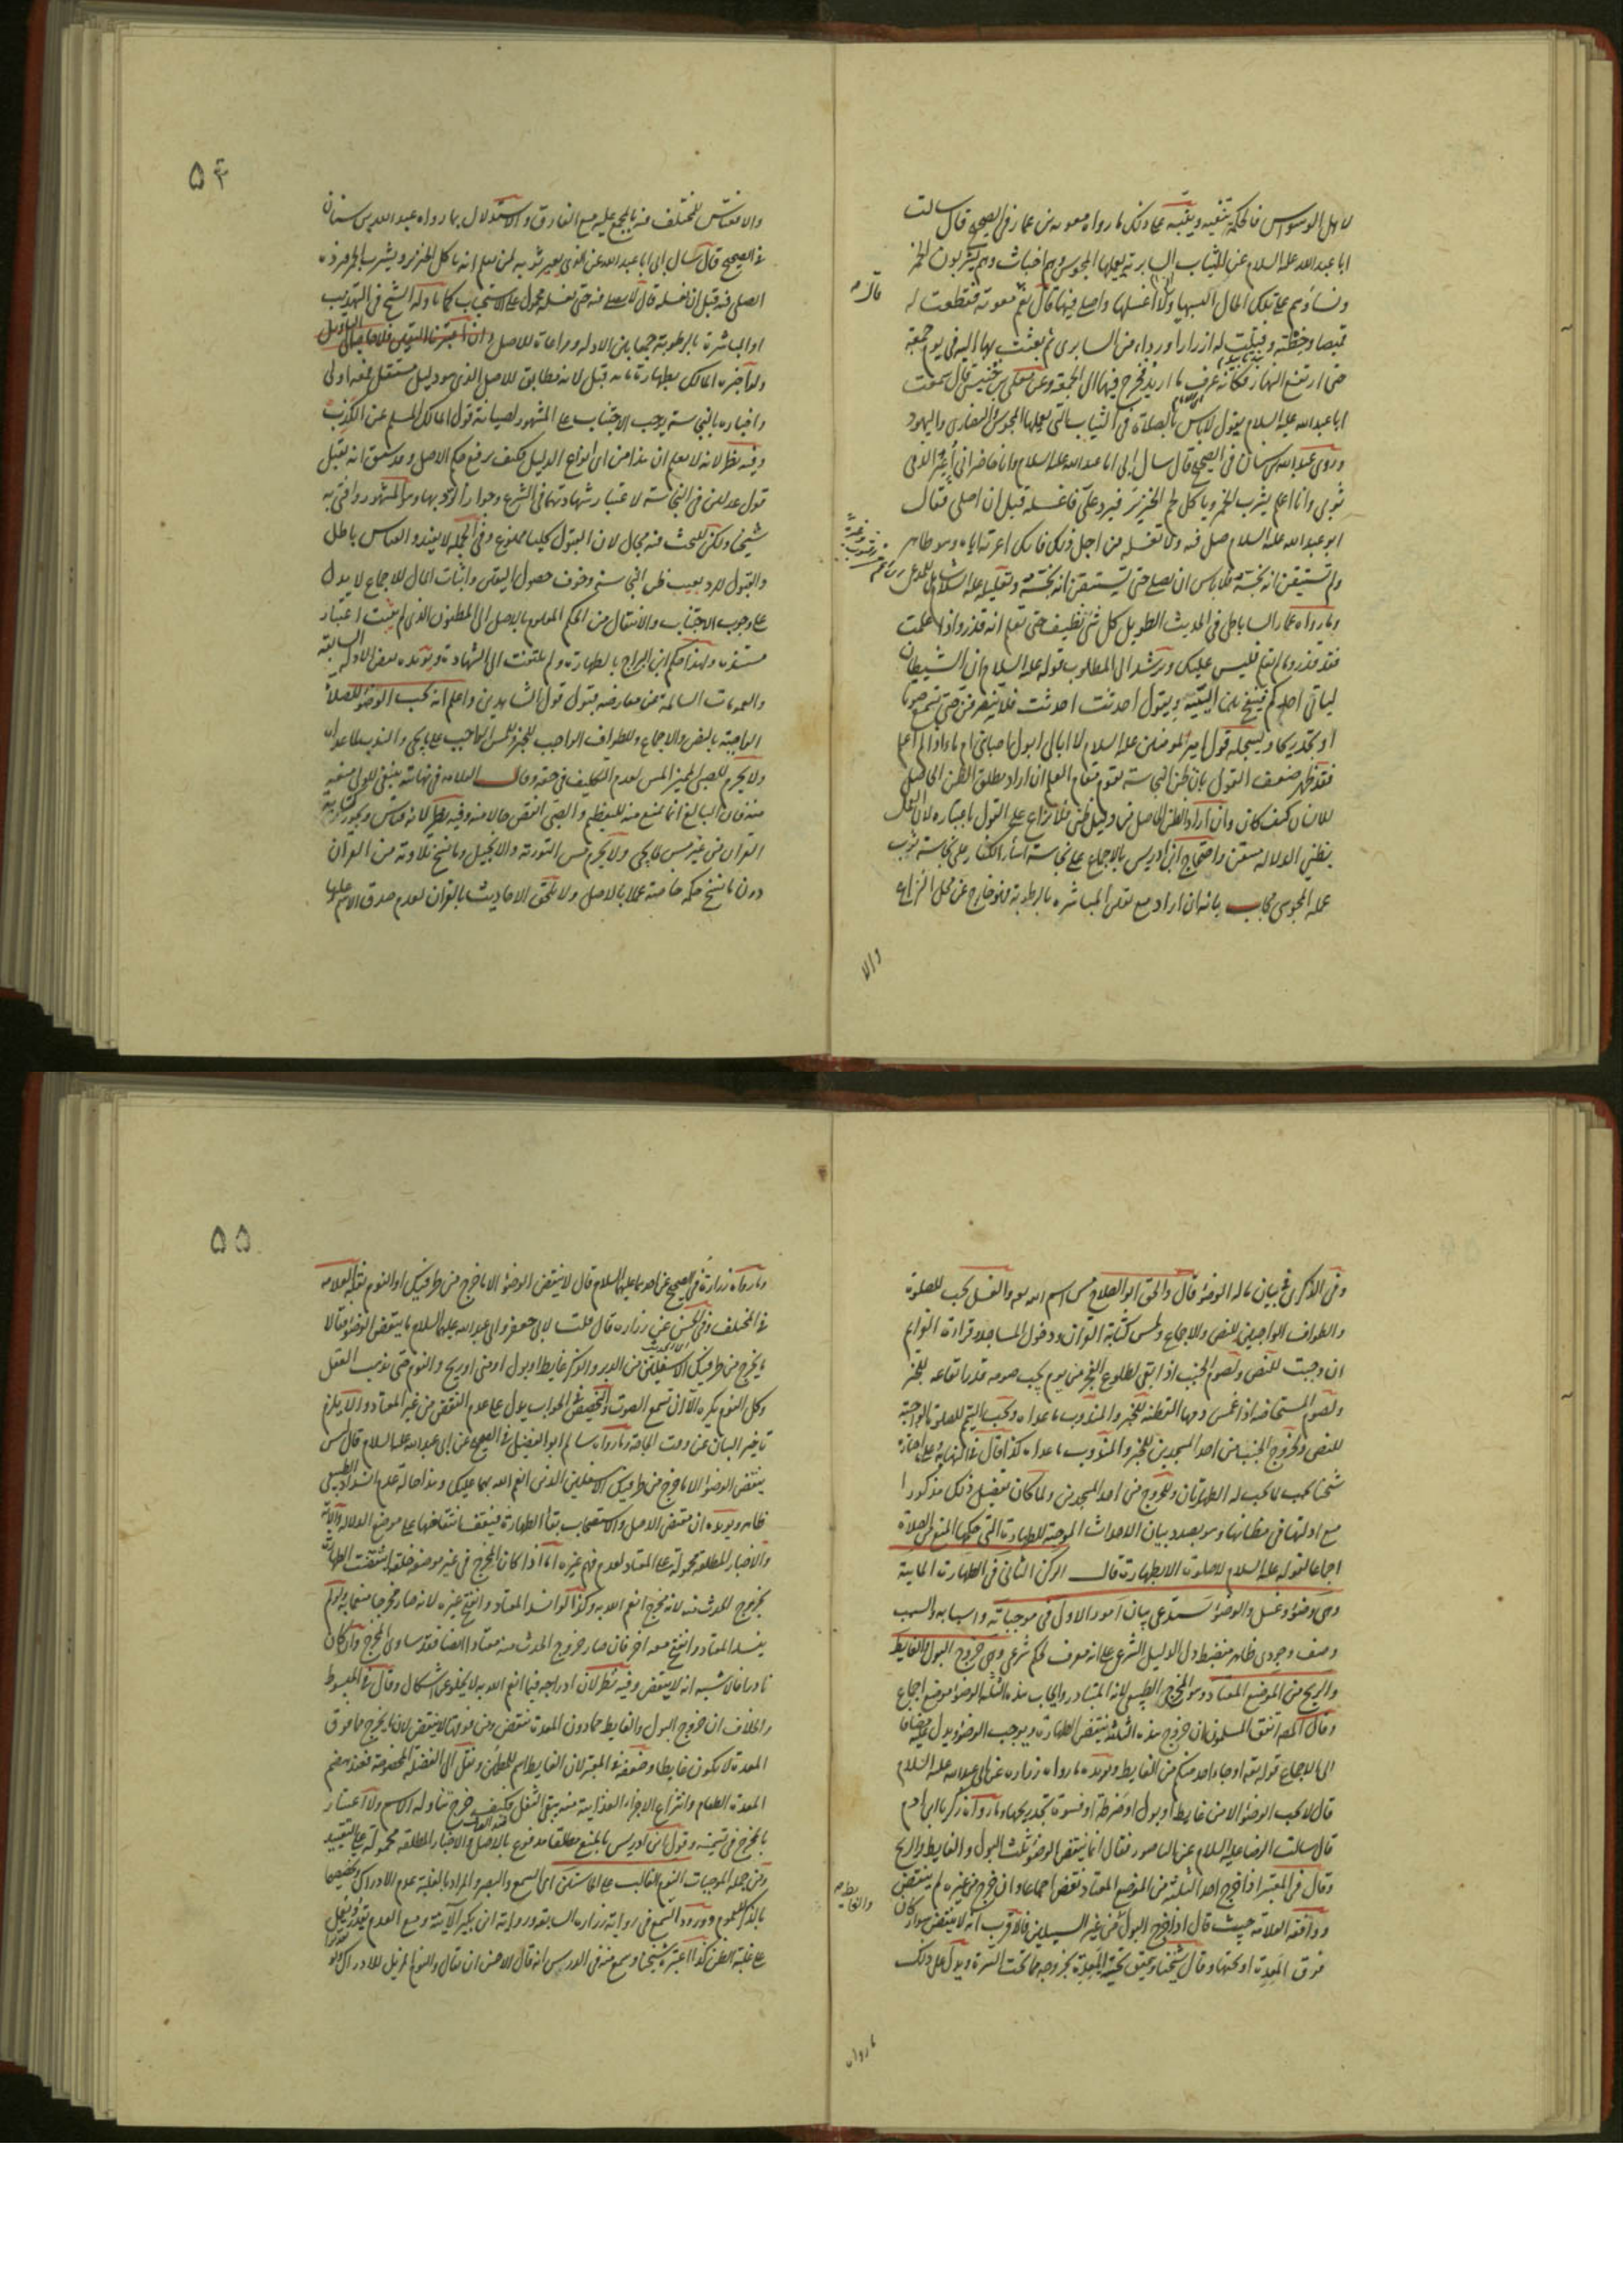 لاهل الوسواس فالحكمة تنفيه وينبه على ذلك ما رواه معوية بن عمار في الصحيح قال سالت
ابا عبد الله عليه السلام عن الثياب السابرية يعملها المجوس وهم اخباث وهم يشربون الخمر
ونساؤهم على تلك الحال البسها ولا اغسلها واصلي فيها قال نعم قال معوية فقطعت له
قميصا وخطته وفتلت له ازرارا ورداء من السابري ثم بعثت بها اليه في يوم جمعة
حتى ارتفع النهار فكانه عرف ما اريد فخرج فيها الى الجمعة وعن معلى بن خنيس قال سمعت
ابا عبد الله عليه السلام يقول لا باس بالصلاة في الثياب التي يعملها المجوس والنصارى واليهود
وروى عبد الله بن سنان في الصحيح قال سال ابي ابا عبد الله عليه السلام وانا حاضر اني اعير الذمي
ثوبي وانا اعلم يشرب الخمر وياكل لحم الخنزير فيرد علي فاغسله قبل ان اصلي فقال
ابو عبد الله عليه السلام صل فيه ولا تغسله من اجل ذلك فانك اعرته اياه وهو طاهر
ولم تستيقن انه نجسه فلا باس ان تصلي حتى تستيقن انه نجسه وتعليله عليه السلام
وما رواه عمار الساباطي في الحديث الطويل كل شئ نظيف حتى تعلم انه قذر واذا علمت
فقد قذر وما لم تعلم فليس عليك ويرشد الى المطلوب قوله عليه السلام ان الشيطان
لياتي احدكم فينفخ بين اليتيه ويقول احدثت احدثت فلا ينصرفن حتى يسمع صوتا
او يجد ريحا ويسجله قول امير المؤمنين عليه السلام لا ابالي ابول اصابني ام ماء اذا لم اعلم
فقد ظهر ضعف القول بان ظن النجاسة يقوم مقام العلم ان اراد مطلق الظن الحاصل
للانسان كيف كان وان اراد الظن الحاصل من دليل ظني فلا نزاع على القول باعتباره لان العمل
بظني الدلالة متعين واحتجاج ابن ادريس بالاجماع على نجاسة اسار الكفار على نجاسة ثوب
عمله المجوسي مجاب بانه ان اراد مع تعلق المباشرة بالرطوبة فهو خارج عن محل النزاع
والا
والا فقاس المختلف فيه بالمجمع عليه مع الفارق والاستدلال بما رواه عبد الله بن سنان
في الصحيح قال سال ابي ابا عبد الله عن الذي يعير ثوبه لمن يعلم انه ياكل الخنزير ويشرب الخمر فيرده
ايصلي فيه قبل ان يغسله قال لا يصلي فيه حتى يغسله محمول على الاستحباب كما تاوله الشيخ في التهذيب
او المباشرة بالرطوبة جمعا بين الادلة ومراعاة للاصل وان اعتبرنا اليقين
ولو اخبره المالك بطهارة انائه قبل لانه مطابق للاصل الذي هو دليل مستقل فمعه اولى
واخباره بالنجاسة يوجب الاجتناب على المشهور لصيانة قول المالك المسلم عن الكذب
وفيه نظر لانه لا يعلم ان هذا من اي انواع الدليل فكيف يرفع حكم الاصل وقد سبق انه يقبل
قول عدلين في النجاسة لاعتبار شهادتهما في الشرع وجواز الرد بها وهو المشهور وافتى به
شيخنا ولكن للبحث فيه مجال لان القبول كليا ممنوع وفي الجملة لا يفيد والقياس باطل
والقبول للرد بعيب ظن النجاسة وخوف حصول اليقين واثبات المال للاجماع لا يدل
على وجوب الاجتناب والانتقال من الحكم المعلوم بالاصل الى المظنون الذي لم يثبت اعتبار
مستنده ولهذا حكم ابن البراج بالطهارة ولم يلتفت الى الشهادة ويؤيده بعض الادلة السابقة
والعمومات السالمة عن معارضة قبول قول الشاهدين واعلم انه يجب الوضوء للصلاة
الواجبة بالنص والاجماع وللطواف الواجب للخبر وللمس الواجب على ما يجي والندب لما عداه
ولا يحرم للصبي المميز المس لعدم التكليف في حقه وقال العلامه في نهايته ينبغي للولي منعه
منه فان البالغ انما يمنع منه للتعظيم والصبي انقص حالا منه وفيه نظر لانه قياس ويجوز كتابة
القران من غير مس لما يجي ولا يحرم مس التورية والانجيل وما نسخ تلاوته من القران
دون ما نسخ حكمه خاصة عملا بالاصل ولا تلحق الاحاديث بالقران لعدم صدق الاسم عليها
وفي الذكرى في بيان ما له الوضوء قال والحق ابو الصلاح مس اسم الله تعالى والغسل يجب للصلوة
والطواف الواجبين للنص والاجماع ولمس كتابة القران ودخول المساجد وقراءة العزائم
ان وجبت للنص ولصوم الجنب اذا بقي لطلوع الفجر من يوم يجب صومه قدر ايقاعه للخبر
ولصوم المستحاضة اذا غمس دمها القطنة للخبر والمندوب ما عداه ويجب التيمم للصلوة الواجبة
للنص ولخروج الجنب من احد المسجدين للخبر والمندوب ما عداه كذا قال في النهاية
شيخنا يجب لما يجب له الطهارتان وللخروج من احد المسجدين ولما كان تفصيل ذلك مذكورا
مع ادلتها في مظانها وهو بصدد بيان الاحداث الموجبة للطهارة التي حكمها المنع من الصلاة
اجماعا لقوله عليه السلام لا صلوة الا بطهارة قال الركن الثاني في الطهارة المائية
وهي وضوء وغسل والوضوء يستدعي بيان امور الاول في موجباته واسبابه والسبب
وصف وجودي ظاهر منضبط دل الدليل الشرعي على انه معرف لحكم شرعي وهي خروج البول والغايط
والريح من الموضع المعتاد وهو المخرج الطبيعي لانه المتبادر وايجاب هذه الثلثة الوضوء موضع اجماع
وقال المص اتفق المسلمون ان خروج هذه الثلثة ينقض الطهارة ويوجب الوضوء ويدل عليه مضافا
الى الاجماع قوله تعالى او جاء احد منكم من الغايط ويؤيده ما رواه زراره عن ابي عبد الله عليه السلام
قال لا يجب الوضوء الا من غايط او بول او ضرطة او فسوة تجد ريحها وما رواه زكريا بن ادم
قال سالت الرضا عليه السلام عن الناصور فقال انما ينقض الوضوء ثلث البول والغايط والريح
وقال في المعتبر اذا خرج احد الثلثة من الموضع المعتاد نقض اجماعا وان خرج من غيره لم ينقض
ووافقه العلامة حيث قال اذا خرج البول من غير السبيلين فالاقرب انه لا ينقض سواء كان
فوق المعدة او تحتها وقال شيخنا ويدل على ذلك
ما رواه
وما رواه زرارة في الصحيح عن احدهما عليهما السلام قال لا ينقض الوضوء الا ما خرج من طرفيك او النوم نقله العلامه
في المختلف وفي الحسن عن زراره قال قلت لابي جعفر وابي عبد الله عليهما السلام ما ينقض الوضوء فقالا
ما يخرج من طرفيك الاسفلين من الدبر والذكر غايط او بول او مني او ريح والنوم حتى يذهب العقل
وكل النوم يكره الا ان تسمع الصوت والتخصيص في الجواب يدل على عدم النقض من غير المعتاد والا يلزم
تاخير البيان عن وقت الحاجة وما رواه سالم ابو الفضيل في الصحيح عن ابي عبد الله عليه السلام قال ليس
ينقض الوضوء الا ما خرج من طرفيك الاسفلين الذين انعم الله بهما عليك وهذا حالة عدم انسداد الطبيعي
ظاهر ويؤيده ان مقتضى الاصل والاستصحاب بقاء الطهارة فيقف انتقاضها على موضع الدلالة والاية
والاخبار المطلقة محمولة على المعتاد لعدم فهم غيره اما اذا كان المخرج في غير موضعه خلقة انتقضت الطهارة
بخروج الحدث منه لانه مخرج انعم الله به وكذا لو انسد المعتاد وانفتح غيره لانه صار مخرجا منعما به ولو لم
ينسد المعتاد وانفتح معه اخر فان صار خروج الحدث منه معتادا ايضا فقد ساوى المخرج وان كان
نادرا فالاشبه انه لا ينقض وفيه نظر لان ادراجه فيما انعم الله به لا يخلو عن اشكال وقال في المبسوط
والخلاف ان خروج البول والغايط مما دون المعدة ينقض ومن فوقها لا ينقض لان ما يخرج مما فوق
المعدة لا يكون غايطا وضعفه في المعتبر لان الغايط اسم للمطمئن ونقل الى الفضلة المخصوصة فعند هضم
المعدة الطعام وانتزاع الاجزاء الغذائية منه يبقى الثفل فكيف خرج تناوله الاسم ولا اعتبار
بالمخرج في تسميته وقول ابن ادريس بالمنع مطلقا مدفوع بالاصل والاخبار المطلقة محمولة على التقييد
ومن جملة الموجبات النوم الغالب على الحاستين اي السمع والبصر والمراد بالغلبة عدم الادراك وتخصيصهما
بالذكر للعموم وورود السمع في رواية زراره السابقة ورواية ابن بكير الاتية ومع العدم
على غلبة الظن كذا اعتبره شيخنا وسمع منه في الدرس انه قال الاحسن ان يقال والنوم المزيل للادراك
قال
والغايط
٥٤
٥٥